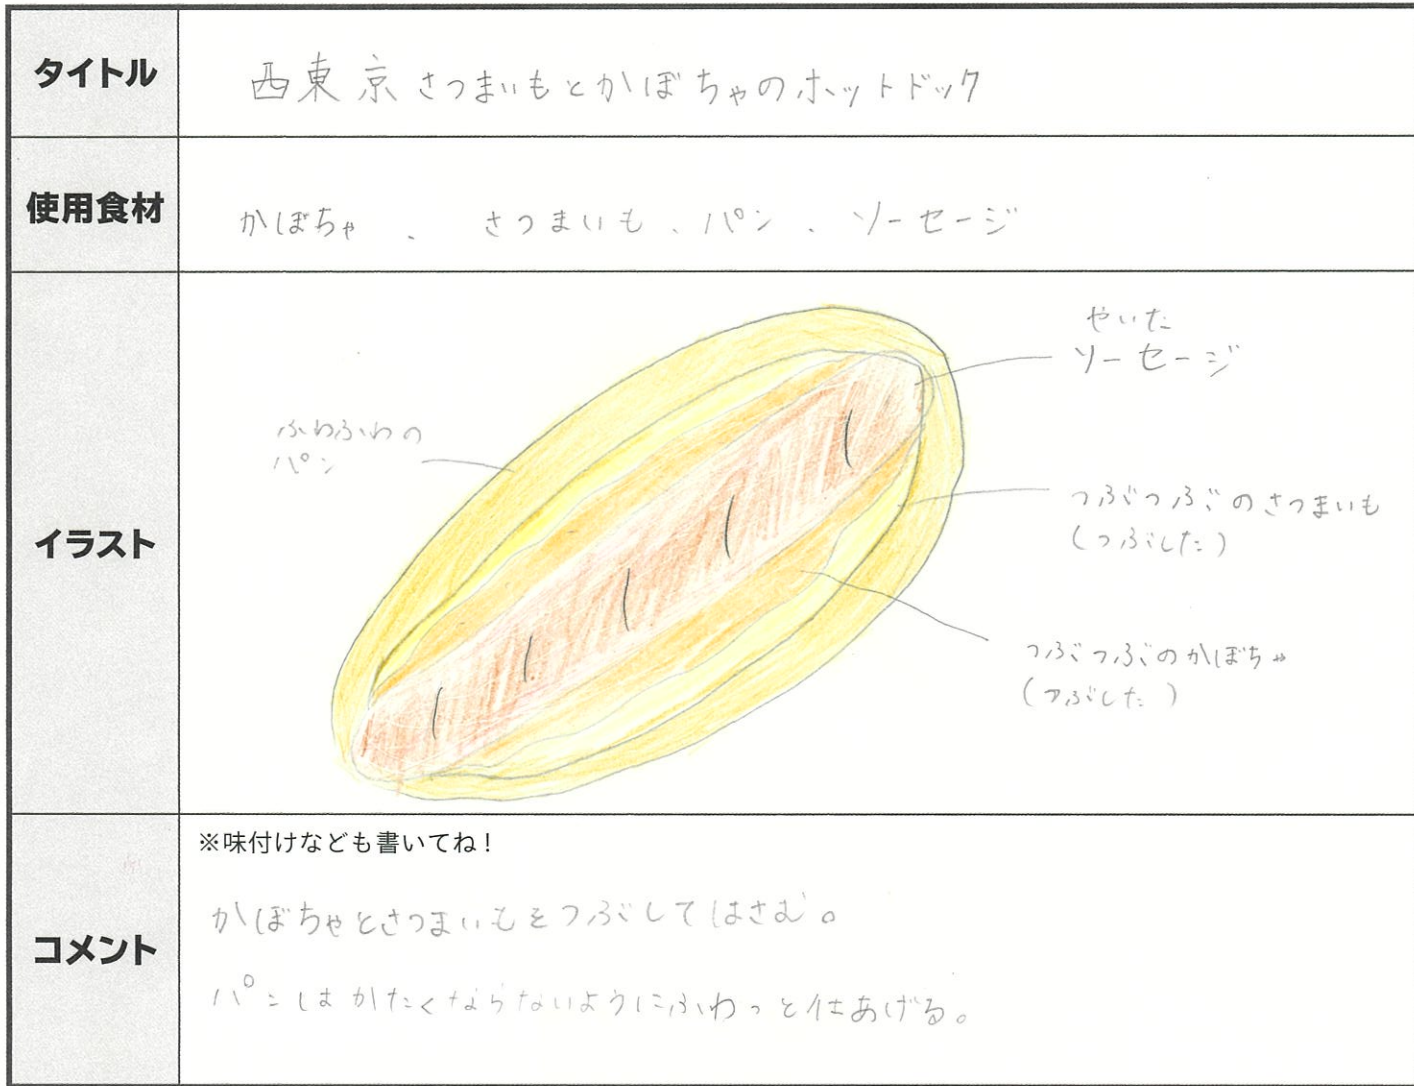 タイトル
西東京さつまいもとかぼちゃのホットドック
使用食材
かぼちゃ、さつまいも、パン、ソーセージ
イラスト
やいた
ソーセージ
ふわふわの
パン
つぶつぶのさつまいも
(つぶした)
つぶつぶのかぼちゃ
(つぶした)
コメント
※味付けなども書いてね!
かぼちゃとさつまいもをつぶしてはさむ。
パンはかたくならないようにふわっと仕あげる。